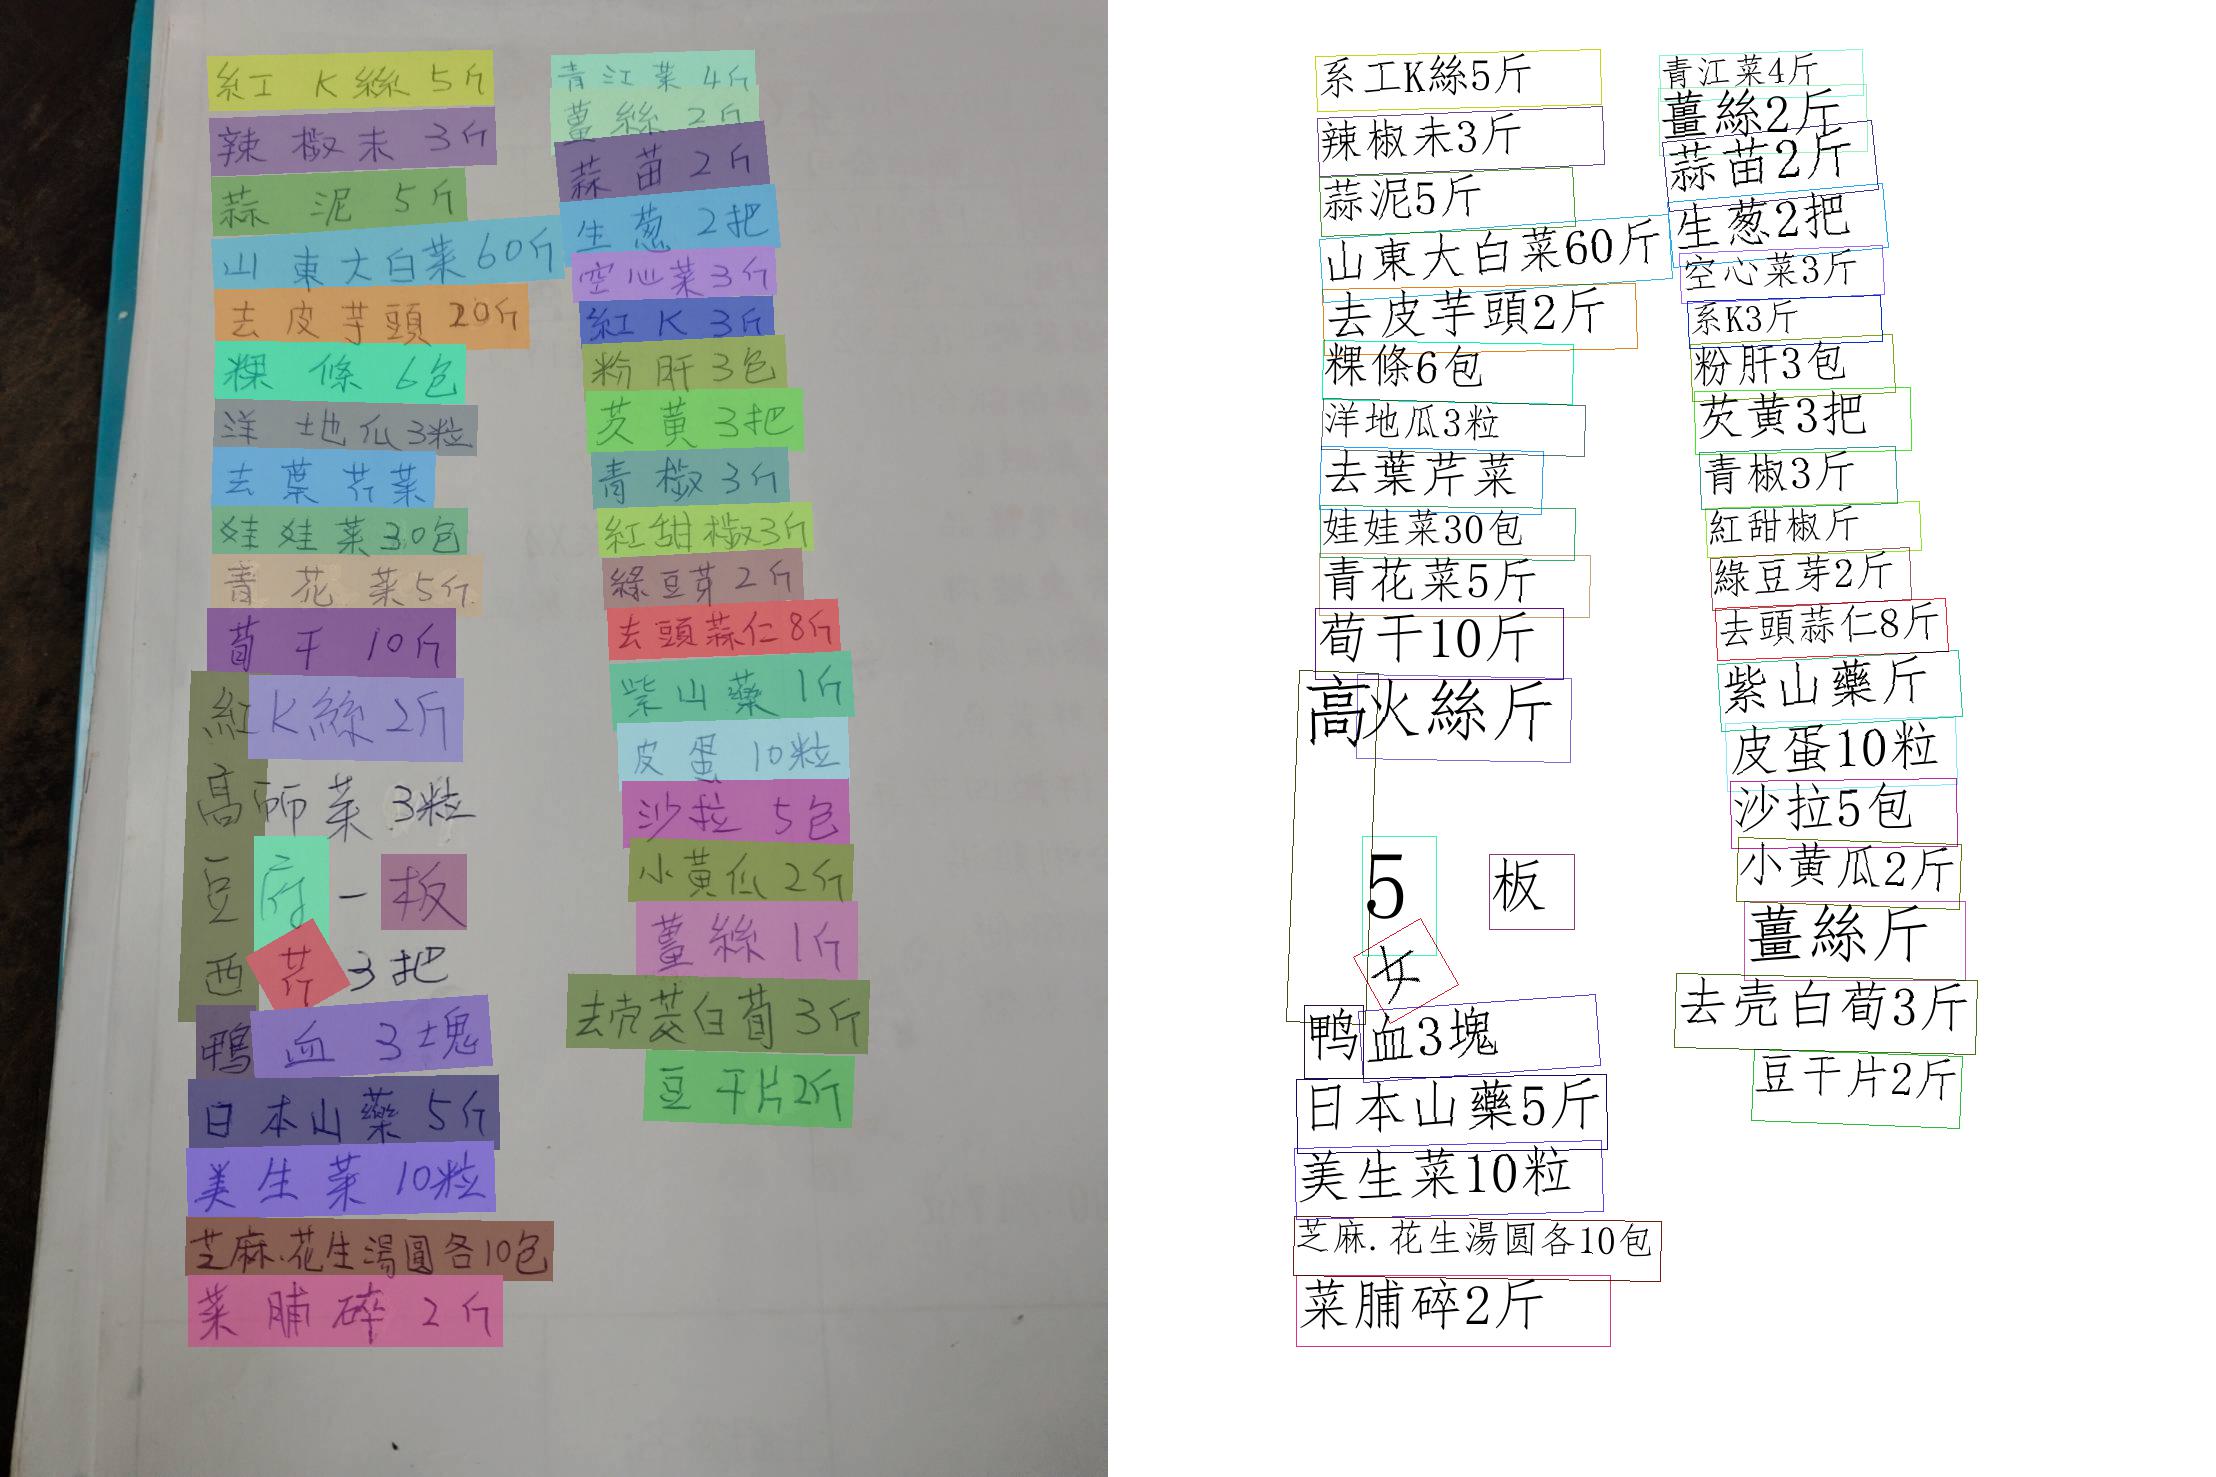 紅K絲5斤
辣椒末3斤
蒜泥5斤
山東大白菜60斤
去皮芋頭20斤
粿條6包
洋地瓜3粒
去葉芹菜
娃娃菜30包
青花菜5斤
荀干10斤
紅K絲2斤
高麗菜3粒
豆府一板
西芹3把
鴨血3塊
日本山藥5斤
美生菜10粒
芝麻.花生湯圓各10包
菜脯碎2斤
青江菜4斤
薑絲2斤
蒜苗2斤
生葱2把
空心菜3斤
紅K3斤
粉肝3包
芡黃3把
青椒3斤
紅甜椒3斤
綠豆芽2斤
去頭蒜仁8斤
紫山藥1斤
皮蛋10粒
沙拉5包
小黃瓜2斤
薑絲1斤
去壳茭白荀3斤
豆干片2斤
系工K絲5斤
辣椒未3斤
蒜泥5斤
山東大白菜60斤
去皮芋頭2斤
粿條6包
洋地瓜3粒
去葉芹菜
娃娃菜30包
青花菜5斤
荀干10斤
高火絲斤
5
板
女
鸭血3塊
日本山藥5斤
美生菜10粒
芝麻.花生湯圆各10包
菜脯碎2斤
青江菜4斤
薑絲2斤
蒜苗2斤
生葱2把
空心菜3斤
系K3斤
粉肝3包
芡黄3把
青椒3斤
紅甜椒斤
綠豆芽2斤
去頭蒜仁8斤
紫山藥斤
皮蛋10粒
沙拉5包
小黄瓜2斤
薑絲斤
去壳白荀3斤
豆干片2斤